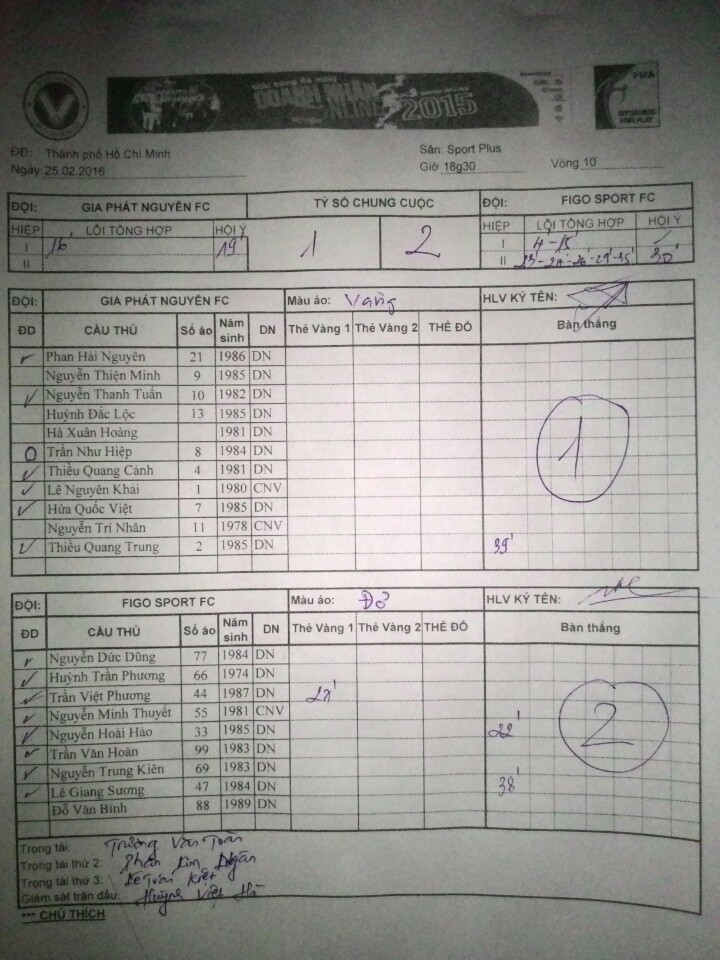 DOANH NHÂN
2015
FIFA
MY GAME IS
FAIR PLAY
ĐĐ: Thành phố Hồ Chí Minh
Sân: Sport Plus
Ngày 25.02.2016
Giờ 18g30
Vòng 10
ĐỘI: GIA PHÁT NGUYÊN FC TỶ SỐ CHUNG CUỘC ĐỘI: FIGO SPORT FC
HIỆP LỖI TỔNG HỢP HỘI Ý 1 2 HIỆP LỖI TỔNG HỢP HỘI Ý
I 16' 19' I 4-15'
II II 30'
ĐỘI: GIA PHÁT NGUYÊN FC Màu áo: Vàng HLV KÝ TÊN:
ĐD CẦU THỦ Số áo Năm sinh DN Thẻ Vàng 1 Thẻ Vàng 2 THẺ ĐỎ Bàn thắng
Phan Hải Nguyên 21 1986 DN
Nguyễn Thiện Minh 9 1985 DN
Nguyễn Thanh Tuấn 10 1982 DN
Huỳnh Đắc Lộc 13 1985 DN
Hà Xuân Hoàng 1981 DN
Trần Như Hiệp 8 1984 DN
Thiều Quang Cảnh 4 1981 DN
Lê Nguyên Khải 1 1980 CNV
Hứa Quốc Việt 7 1985 DN
Nguyễn Trí Nhân 11 1978 CNV
Thiều Quang Trung 2 1985 DN 39'
1
ĐỘI: FIGO SPORT FC Màu áo: Đỏ HLV KÝ TÊN:
ĐD CẦU THỦ Số áo Năm sinh DN Thẻ Vàng 1 Thẻ Vàng 2 THẺ ĐỎ Bàn thắng
Nguyễn Đức Dũng 77 1984 DN
Huỳnh Trần Phương 66 1974 DN
Trần Việt Phương 44 1987 DN
Nguyễn Minh Thuyết 55 1981 CNV
Nguyễn Hoài Hảo 33 1985 DN 22'
Trần Văn Hoàn 99 1983 DN
Nguyễn Trung Kiên 69 1983 DN
Lê Giang Sương 47 1984 DN 38'
Đỗ Văn Bình 88 1989 DN
2
Trọng tài: Trương Văn Toàn
Trọng tài thứ 2: Phan Kim Ngân
Trọng tài thứ 3: Lê Tuấn Kiệt
Giám sát trận đấu: Huỳnh Việt Hà
*** CHÚ THÍCH